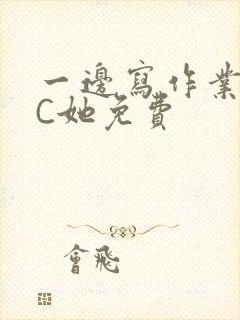 一邊寫作業
C她免費
會飛